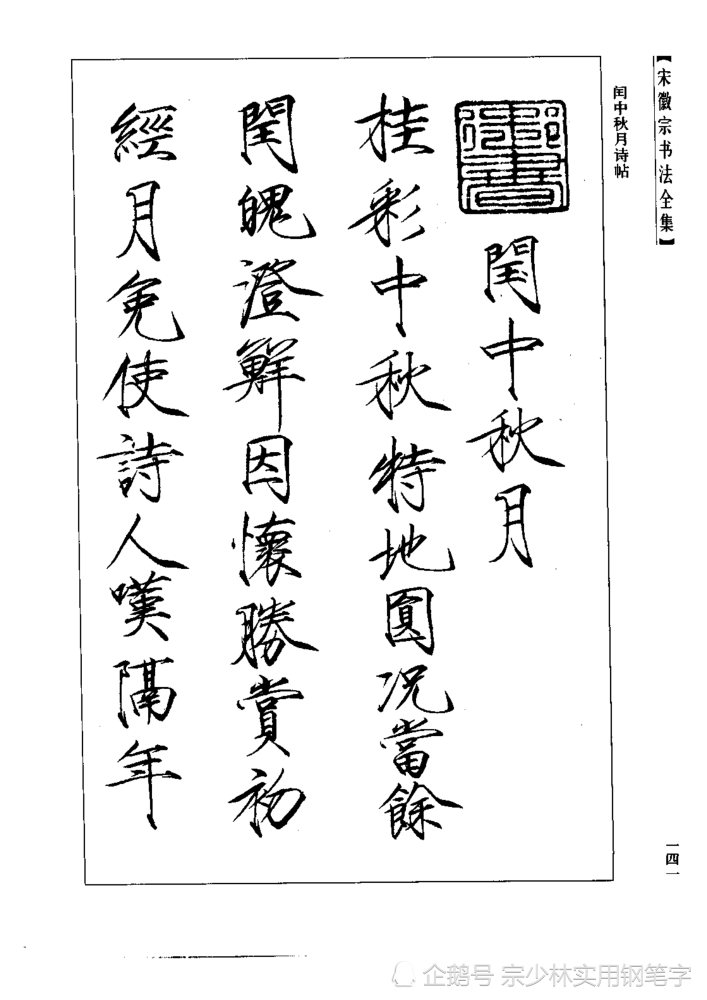 【宋徽宗书法全集】
闰中秋月诗帖
御書
閏中秋月
桂彩中秋特地圓况當餘
閏魄澄鮮因懷勝賞初
經月免使詩人嘆隔年
一四一
企鹅号 宗少林实用钢笔字